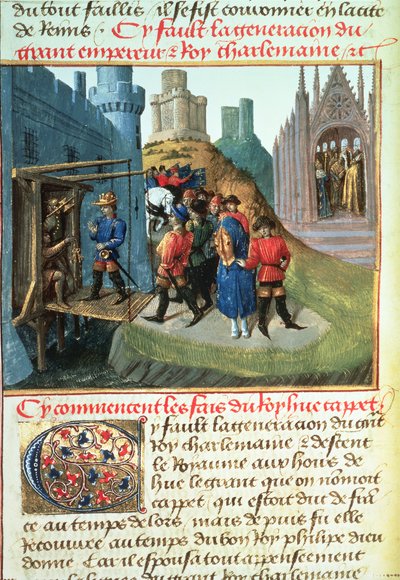 du tout faillis. il se fist couronner en la cite
de Reims. Cy fault la generacion du
grant empereur & Roy charlemaine &c
Cy commencent les fais du Roy hue cappet
Cy fault la generacion du grāt
Roy charlemaine & descent
le Royaume aux hoirs de
hue le grant que on nōmoit
cappet, qui estoit duc de frā
ce au temps de lors, mais depuis fu elle
Recouvree au temps du bon Roy philipe dieu
donne. Car il espousa tout appensement
du grant Roy charlemaine